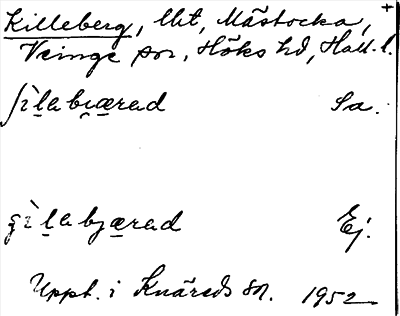 Killeberg, lht, Mästocka, +
Veinge sn, Höks hd, Hall. l.
ʃìlabi̯ærad Sa.
ʂìlabjærad Ej.
Uppt. i Knäreds sn. 1952